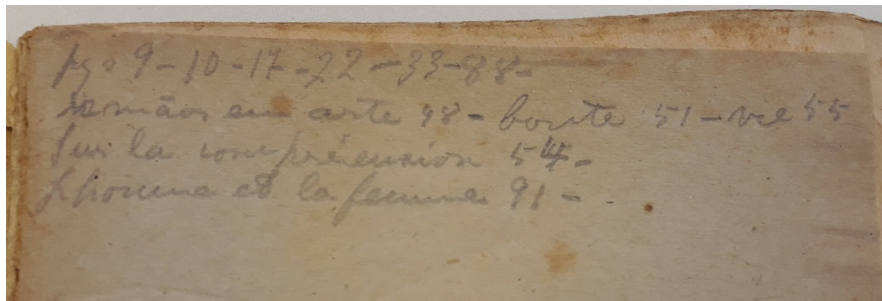 pgs 9-10-17-22-33-88-
irmãos em arte 48- bonte 51-vie 55
Sur la compréension 54-
L'homme et la femme 91-